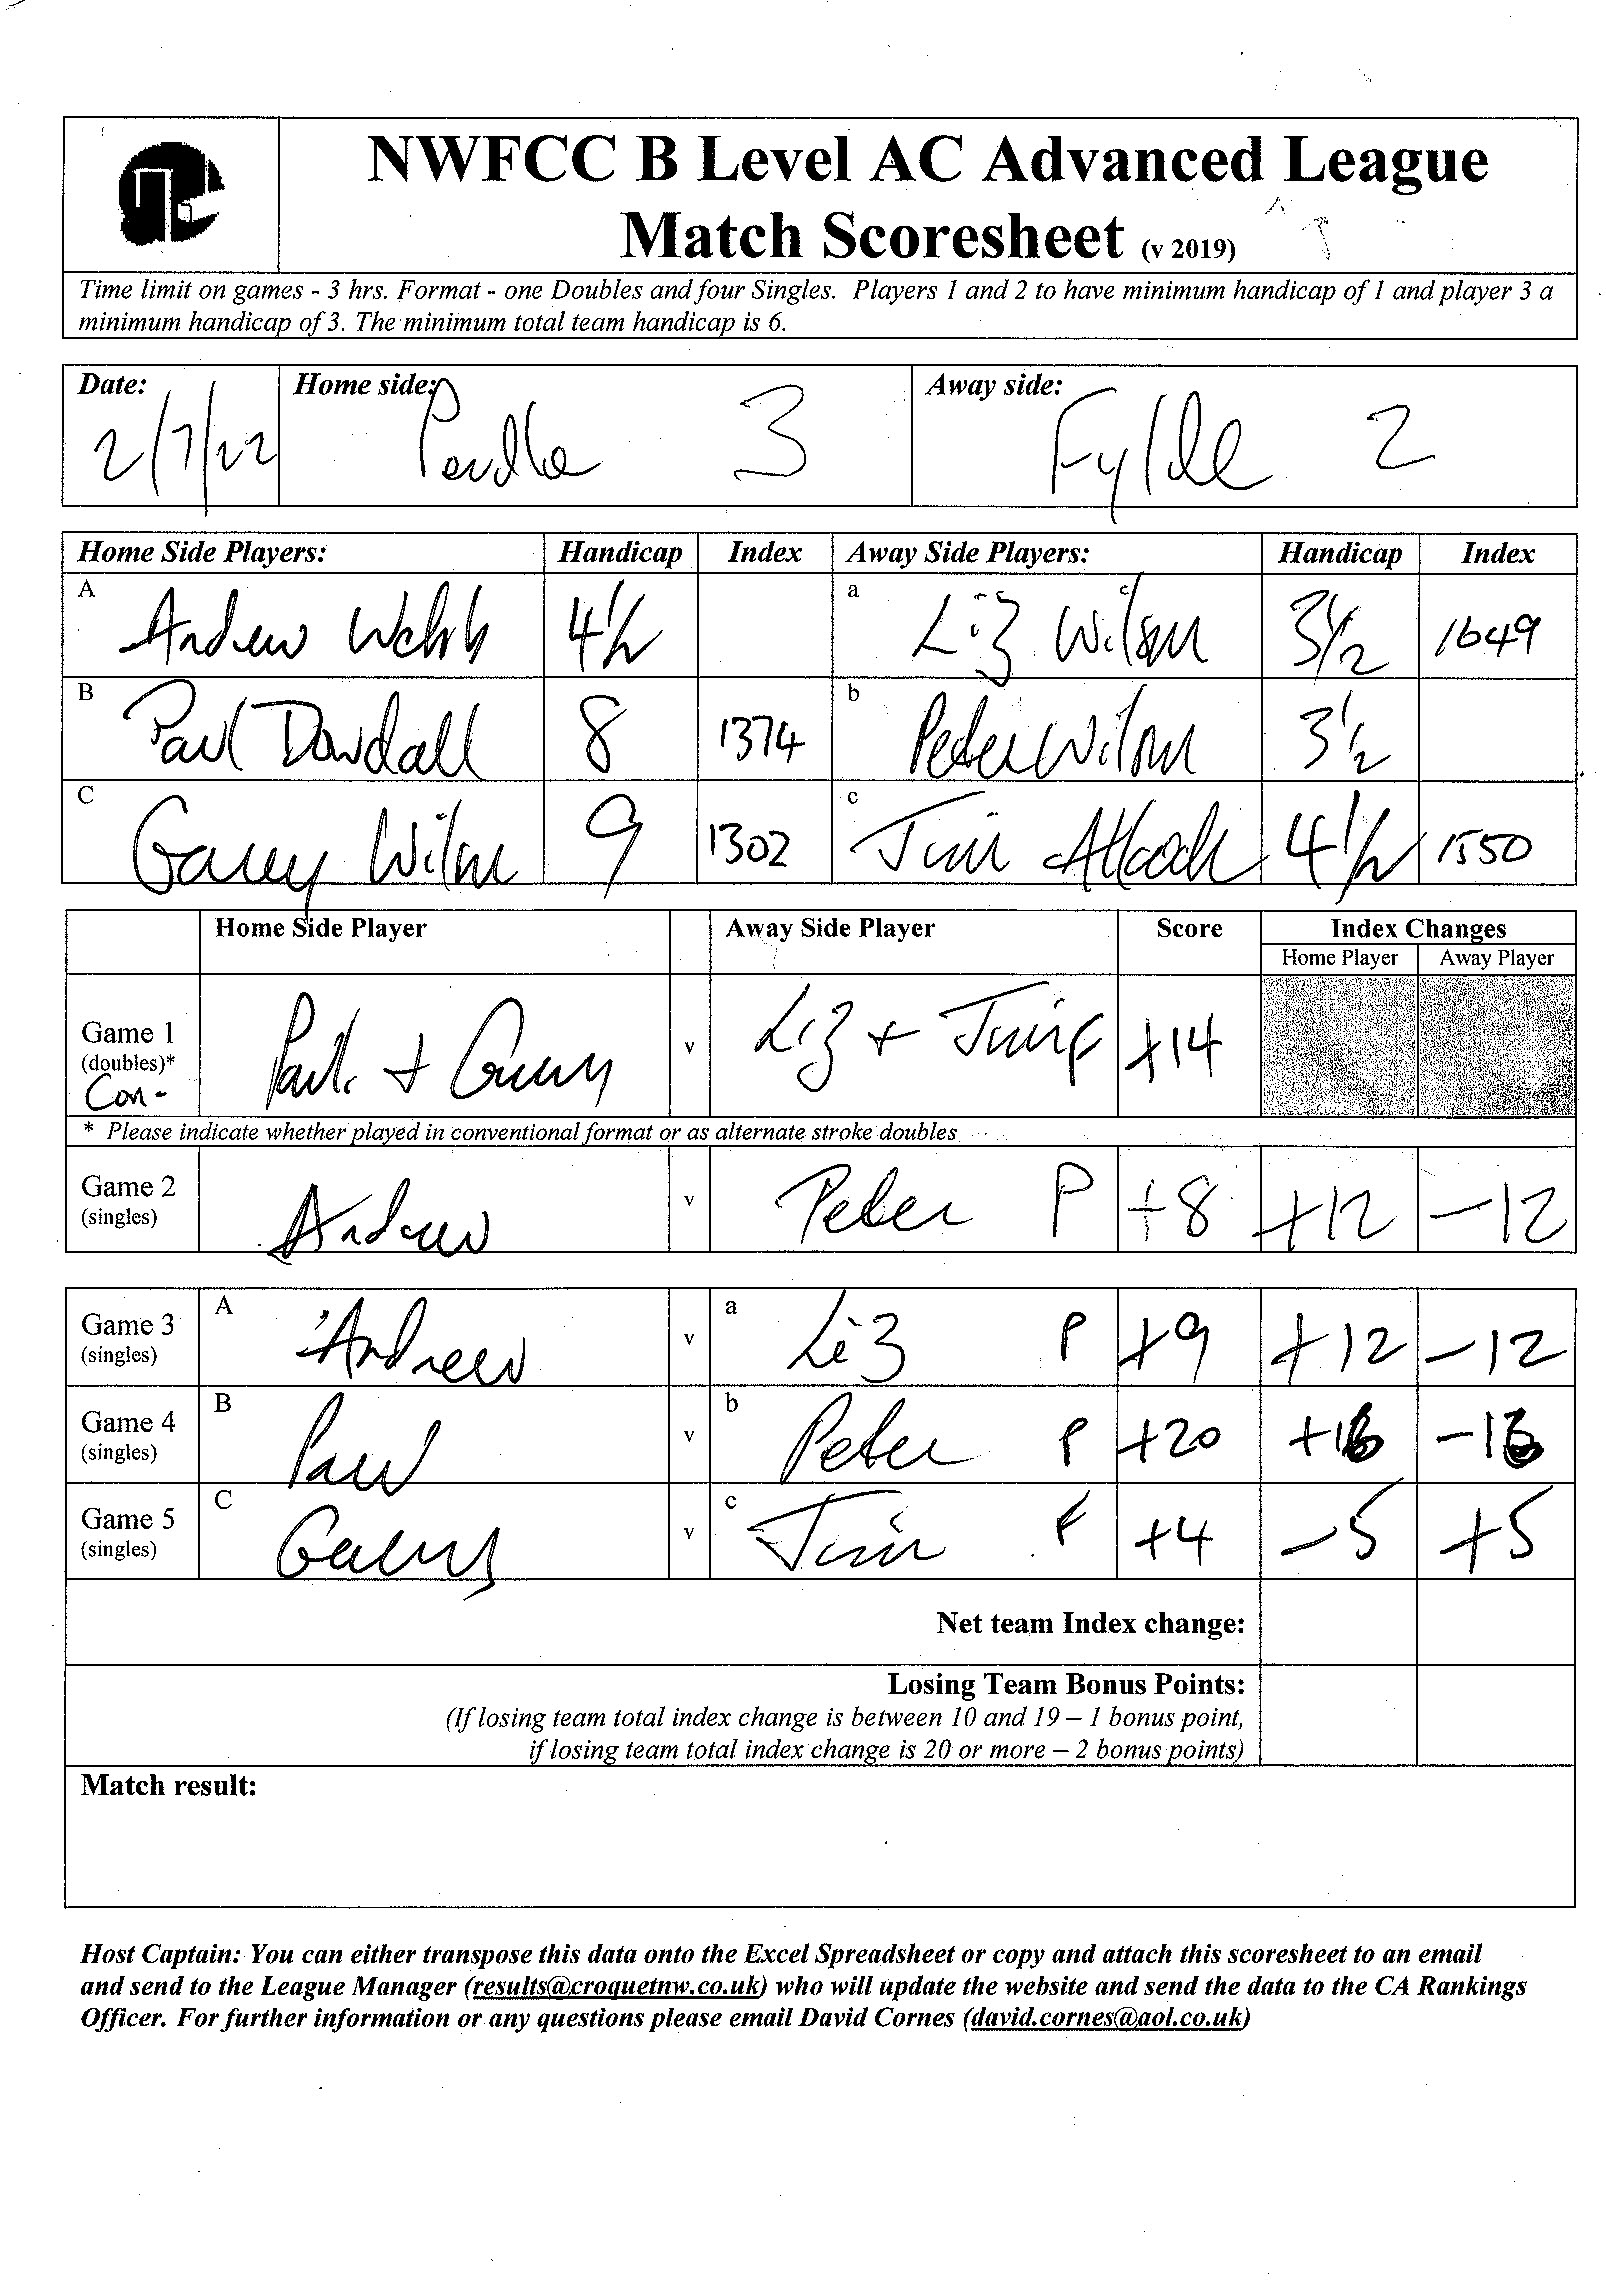 NWFCC B Level AC Advanced League
Match Scoresheet (v 2019)
Time limit on games - 3 hrs. Format - one Doubles and four Singles. Players 1 and 2 to have minimum handicap of 1 and player 3 a
minimum handicap of 3. The minimum total team handicap is 6.
Date: Home side: Away side:
2/7/22 Pendle 3 Fylde 2
Home Side Players: Handicap Index Away Side Players: Handicap Index
A Andrew Webb 4½ a Liz Wilson 3½ 1649
B Paul Dowdall 8 1374 b Peter Wilson 3½
C Garry Wilson 9 1302 c Jim Allcock 4½ 1550
Home Side Player Away Side Player Score Index Changes
Home Player Away Player
Game 1 (doubles)* Con- Paul + Garry v Liz + Jim F +14
* Please indicate whether played in conventional format or as alternate stroke doubles
Game 2 (singles) Andrew v Peter P +8 +12 -12
Game 3 (singles) A Andrew v a Liz P +9 +12 -12
Game 4 (singles) B Paul v b Peter P +20
Game 5 (singles) C Garry v c Jim F +4 -5 +5
Net team Index change:
Losing Team Bonus Points:
(If losing team total index change is between 10 and 19 – 1 bonus point,
if losing team total index change is 20 or more – 2 bonus points)
Match result:
Host Captain: You can either transpose this data onto the Excel Spreadsheet or copy and attach this scoresheet to an email
and send to the League Manager (results@croquetnw.co.uk) who will update the website and send the data to the CA Rankings
Officer. For further information or any questions please email David Cornes (david.cornes@aol.co.uk)